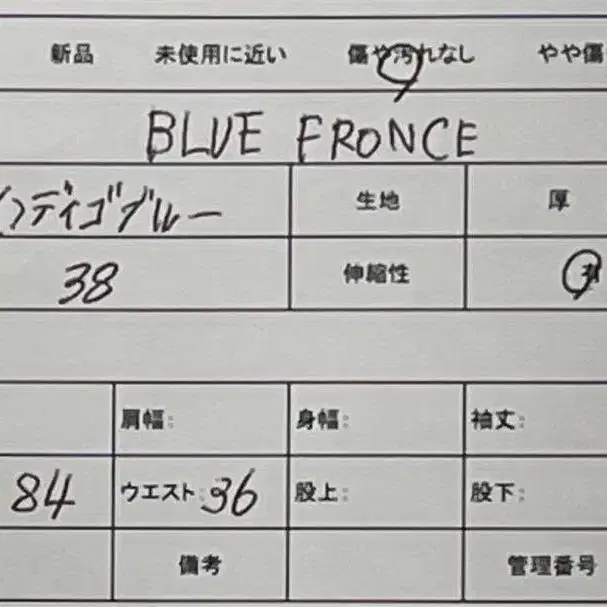 新品 未使用に近い 傷や汚れなし やや傷
BLUE FRONCE
インディゴブルー 生地 厚
38 伸縮性
肩幅: 身幅: 袖丈:
84 ウエスト: 36 股上: 股下:
備考 管理番号